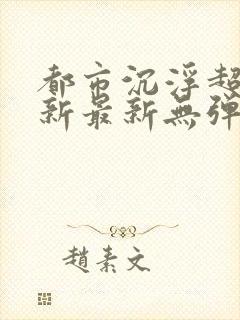 都市沉浮超
新最新無弹
趙素文